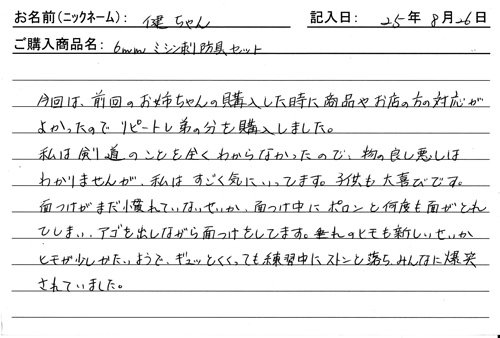 お名前(ニックネーム): 健ちゃん 記入日: 25年 8月26日
ご購入商品名: 6mmミシン刺防具セット
今回は、前回のお姉ちゃんの購入した時に商品やお店の方の対応が
よかったのでリピートし弟の分を購入しました。
私は剣道のことを全くわからなかったので、物の良し悪しは
わかりませんが、私はすごく気にいってます。子供も大喜びです。
面つけがまだ慣れていないせいか、面つけ中にポロンと何度も面がとれ
てしまい、アゴを出しながら面つけをしてます。垂れのヒモも新しいせいか
ヒモが少しかたいようで、ギュッとくくっても練習中にストンと落ち、みんなに爆笑
されていました。